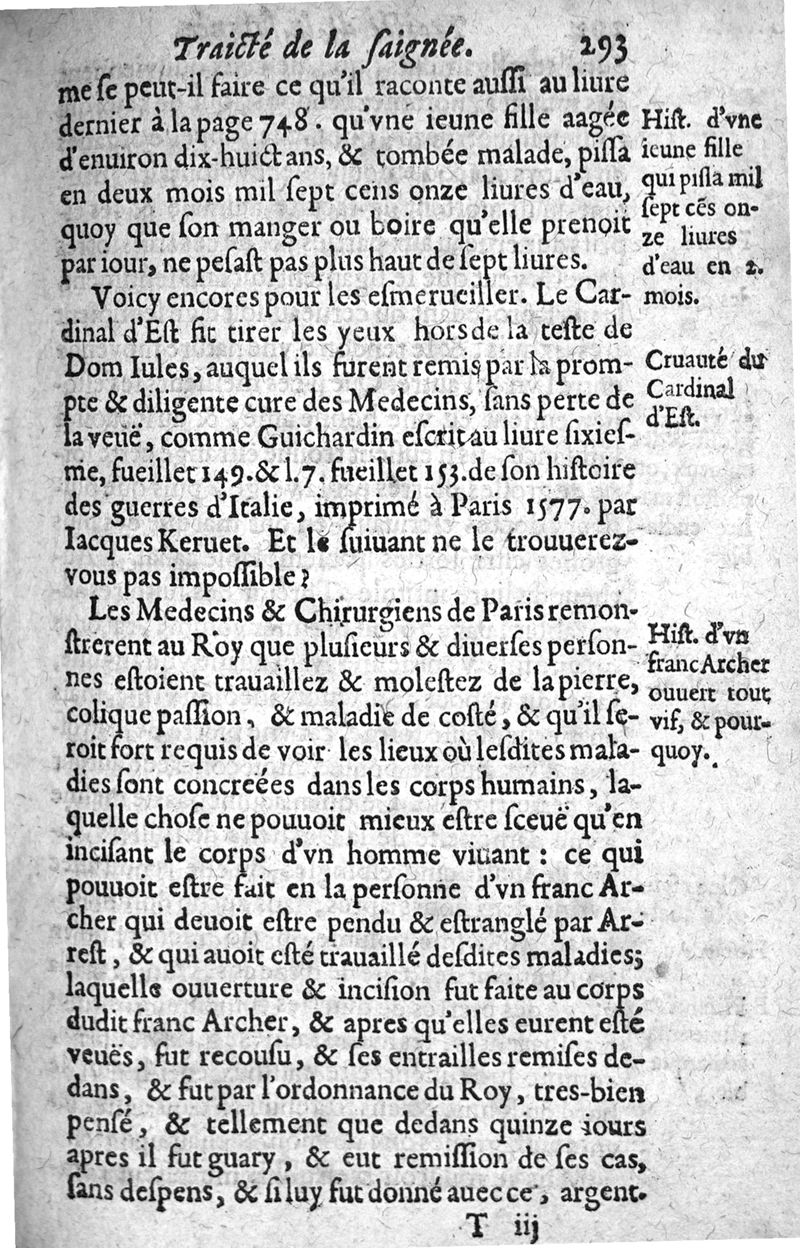 Traicté de la ſaignée. 293
me ſe peut-il faire ce qu'il raconte auſſi au liure
dernier à la page 748. qu'vne ieune fille aagée
d'enuiron dix-huict ans, & tombée malade, piſſa
en deux mois mil ſept cens onze liures d'eau,
quoy que ſon manger ou boire qu'elle prenoit
par iour, ne peſaſt pas plus haut de ſept liures.
Hiſt. d'vne
ieune fille
qui piſſa mil
ſept cẽs on-
ze liures
d'eau en 2.
mois.
Voicy encores pour les eſmerueiller. Le Car-
dinal d'Eſt fit tirer les yeux hors de la teſte de
Dom Iules, auquel ils furent remis par la prom-
pte & diligente cure des Medecins, ſans perte de
la veuë, comme Guichardin eſcrit au liure ſixieſ-
me, fueillet 149. & l. 7. fueillet 153. de ſon hiſtoire
des guerres d'Italie, imprimé à Paris 1577. par
Iacques Keruet. Et le ſuiuant ne le trouuerez-
vous pas impoſſible?
Cruauté du
Cardinal
d'Eſt.
Les Medecins & Chirurgiens de Paris remon-
ſtrerent au Roy que pluſieurs & diuerſes perſon-
nes eſtoient trauaillez & moleſtez de la pierre,
colique paſſion, & maladie de coſté, & qu'il ſe-
roit fort requis de voir les lieux où leſdites mala-
dies ſont concreées dans les corps humains, la-
quelle choſe ne pouuoit mieux eſtre ſceuë qu'en
inciſant le corps d'vn homme viuant : ce qui
pouuoit eſtre fait en la perſonne d'vn franc Ar-
cher qui deuoit eſtre pendu & eſtranglé par Ar-
reſt, & qui auoit eſté trauaillé deſdites maladies;
laquelle ouuerture & inciſion fut faite au corps
dudit franc Archer, & apres qu'elles eurent eſté
veuës, fut recouſu, & ſes entrailles remiſes de-
dans, & fut par l'ordonnance du Roy, tres-bien
penſé, & tellement que dedans quinze iours
apres il fut guary, & eut remiſſion de ſes cas,
ſans deſpens, & ſi luy fut donné auec ce, argent.
Hiſt. d'vn
franc Archer
ouuert tout
vif, & pour-
quoy.
T iij